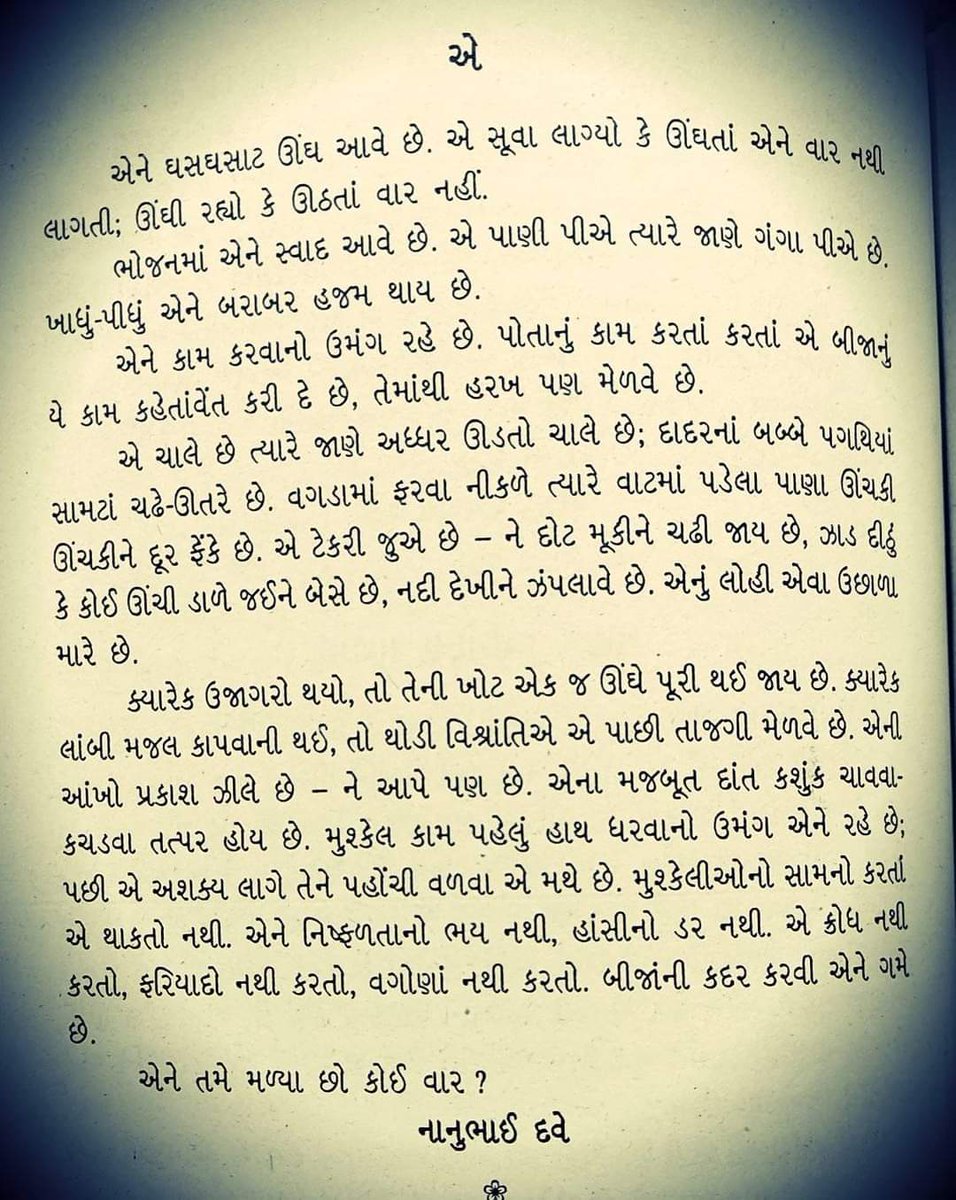 એ
એને ઘસઘસાટ ઊંઘ આવે છે. એ સૂવા લાગ્યો કે ઊંઘતાં એને વાર નથી
લાગતી; ઊંઘી રહ્યો કે ઊઠતાં વાર નહીં.
ભોજનમાં એને સ્વાદ આવે છે. એ પાણી પીએ ત્યારે જાણે ગંગા પીએ છે.
ખાધું-પીધું એને બરાબર હજમ થાય છે.
એને કામ કરવાનો ઉમંગ રહે છે. પોતાનું કામ કરતાં કરતાં એ બીજાનું
યે કામ કહેતાંવેંત કરી દે છે, તેમાંથી હરખ પણ મેળવે છે.
એ ચાલે છે ત્યારે જાણે અધ્ધર ઊડતો ચાલે છે; દાદરનાં બબ્બે પગથિયાં
સામટાં ચઢે-ઊતરે છે. વગડામાં ફરવા નીકળે ત્યારે વાટમાં પડેલા પાણા ઊંચકી
ઊંચકીને દૂર ફેંકે છે. એ ટેકરી જુએ છે – ને દોટ મૂકીને ચઢી જાય છે, ઝાડ દીઠું
કે કોઈ ઊંચી ડાળે જઈને બેસે છે, નદી દેખીને ઝંપલાવે છે. એનું લોહી એવા ઉછાળા
મારે છે.
ક્યારેક ઉજાગરો થયો, તો તેની ખોટ એક જ ઊંઘે પૂરી થઈ જાય છે. ક્યારેક
લાંબી મજલ કાપવાની થઈ, તો થોડી વિશ્રાંતિએ એ પાછી તાજગી મેળવે છે. એની
આંખો પ્રકાશ ઝીલે છે – ને આપે પણ છે. એના મજબૂત દાંત કશુંક ચાવવા-
કચડવા તત્પર હોય છે. મુશ્કેલ કામ પહેલું હાથ ધરવાનો ઉમંગ એને રહે છે;
પછી એ અશક્ય લાગે તેને પહોંચી વળવા એ મથે છે. મુશ્કેલીઓનો સામનો કરતાં
એ થાકતો નથી. એને નિષ્ફળતાનો ભય નથી, હાંસીનો ડર નથી. એ ક્રોધ નથી
કરતો, ફરિયાદો નથી કરતો, વગોણાં નથી કરતો. બીજાંની કદર કરવી એને ગમે
છે.
એને તમે મળ્યા છો કોઈ વાર ?
નાનુભાઈ દવે